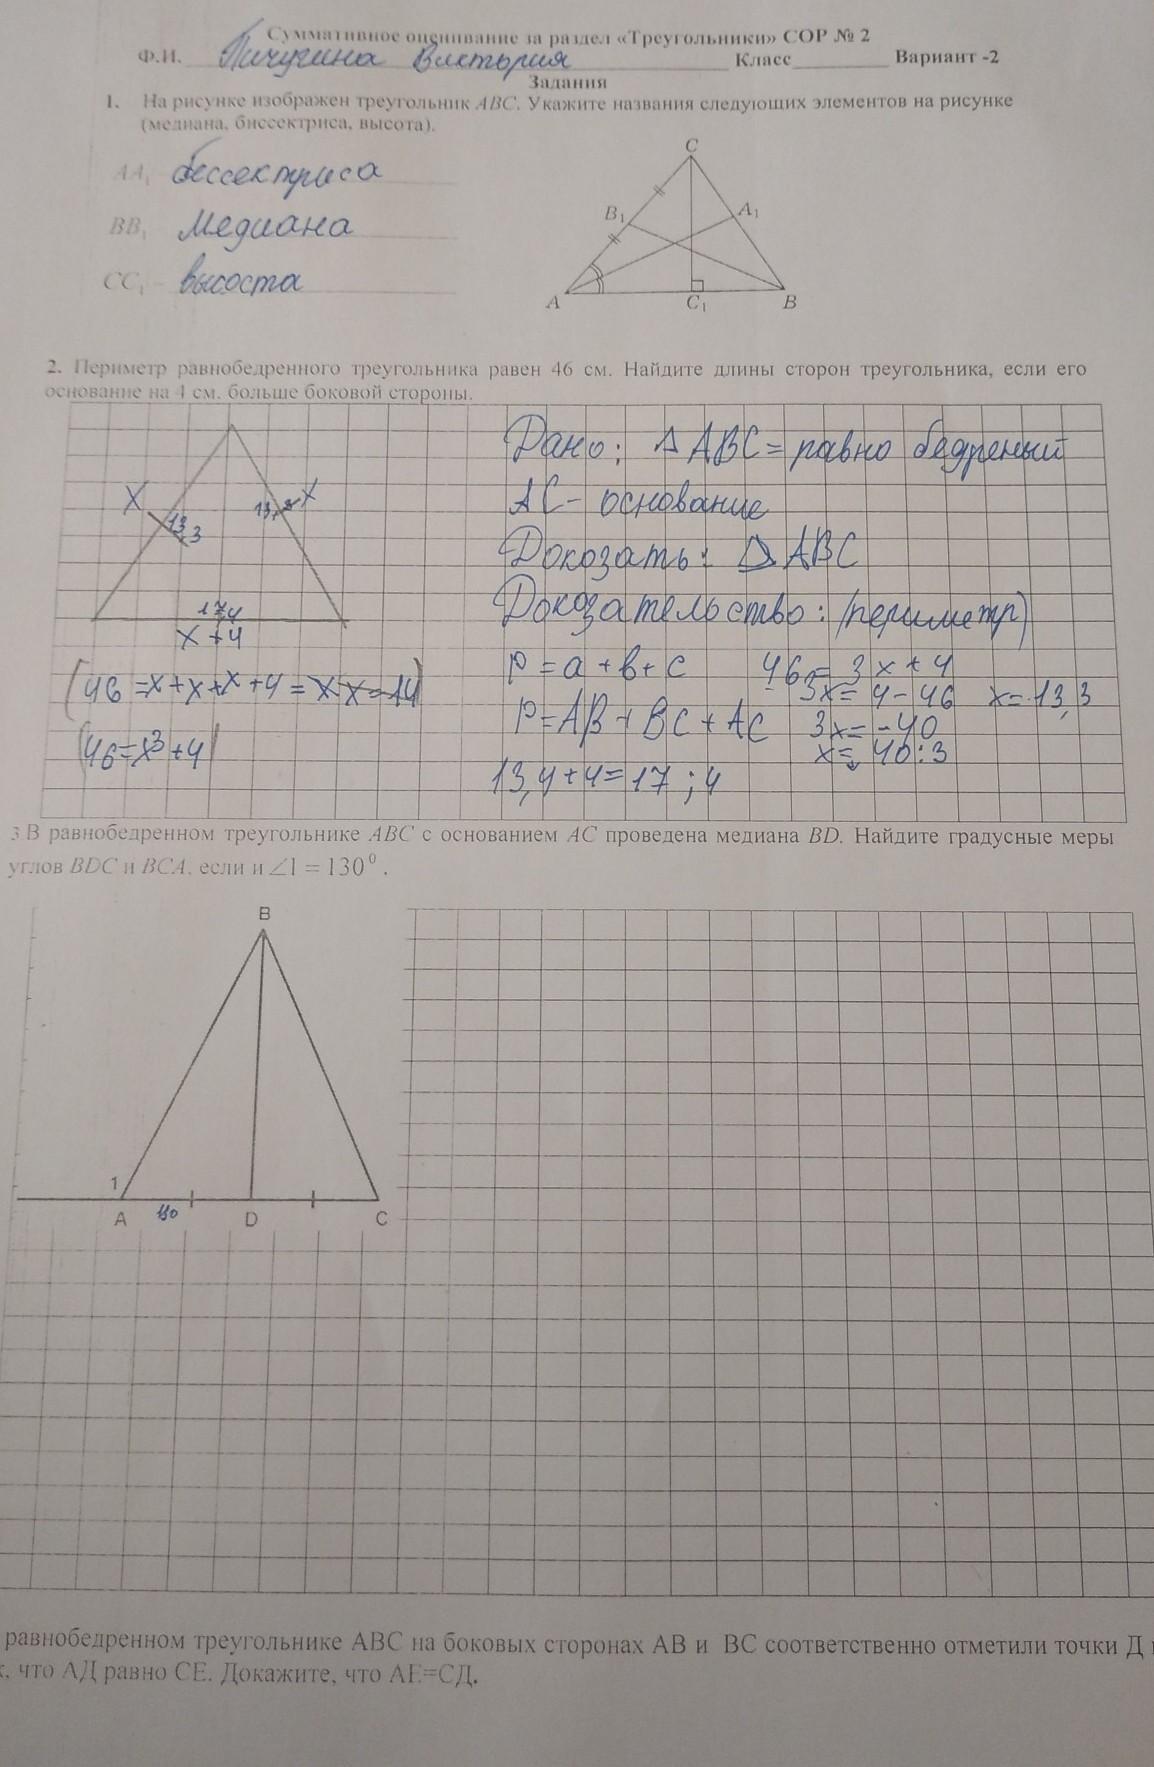 Суммативное оценивание за раздел «Треугольники» СОР № 2
Ф.И. Пичугина Виктория Класс Вариант -2
Задания
1. На рисунке изображен треугольник ABC. Укажите названия следующих элементов на рисунке
(медиана, биссектриса, высота).
AA₁ бессектриса
BB₁ Медиана
CC₁ - высоста
C
B₁ A₁
A C₁ B
2. Периметр равнобедренного треугольника равен 46 см. Найдите длины сторон треугольника, если его
основание на 4 см. больше боковой стороны.
Дано: Δ ABC = равно бедреный
AC - основание
Докозать: Δ ABC
Докозательство: (периметр)
P = a + b + c 46 = 3x + 4
3x = 4 - 46 x = 13,3
P = AB + BC + AC 3x = -40
x = 40:3
13,4 + 4 = 17 ; 4
x 13,3 x
17,4
x + 4
(46 = x + x + x + 4 = x x = 14)
(46 = x³ + 4)
3.В равнобедренном треугольнике ABC с основанием AC проведена медиана BD. Найдите градусные меры
углов BDC и BCA, если и ∠1 = 130⁰.
B
1
A D C
равнобедренном треугольнике АВС на боковых сторонах АВ и ВС соответственно отметили точки Д
, что АД равно СЕ. Докажите, что АЕ=СД.